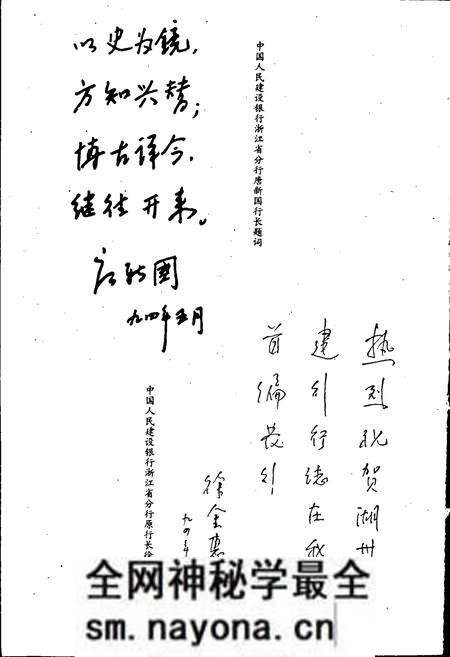 以史为镜，
方知兴替；
博古详今，
继往开来。
唐新国
九四年五月
中国人民建设银行浙江省分行唐新国行长题词
热烈祝贺湖州
建行行志在我
首编发行
徐金惠
九四年
中国人民建设银行浙江省分行原行长徐
全网神秘学最全
sm.nayona.cn